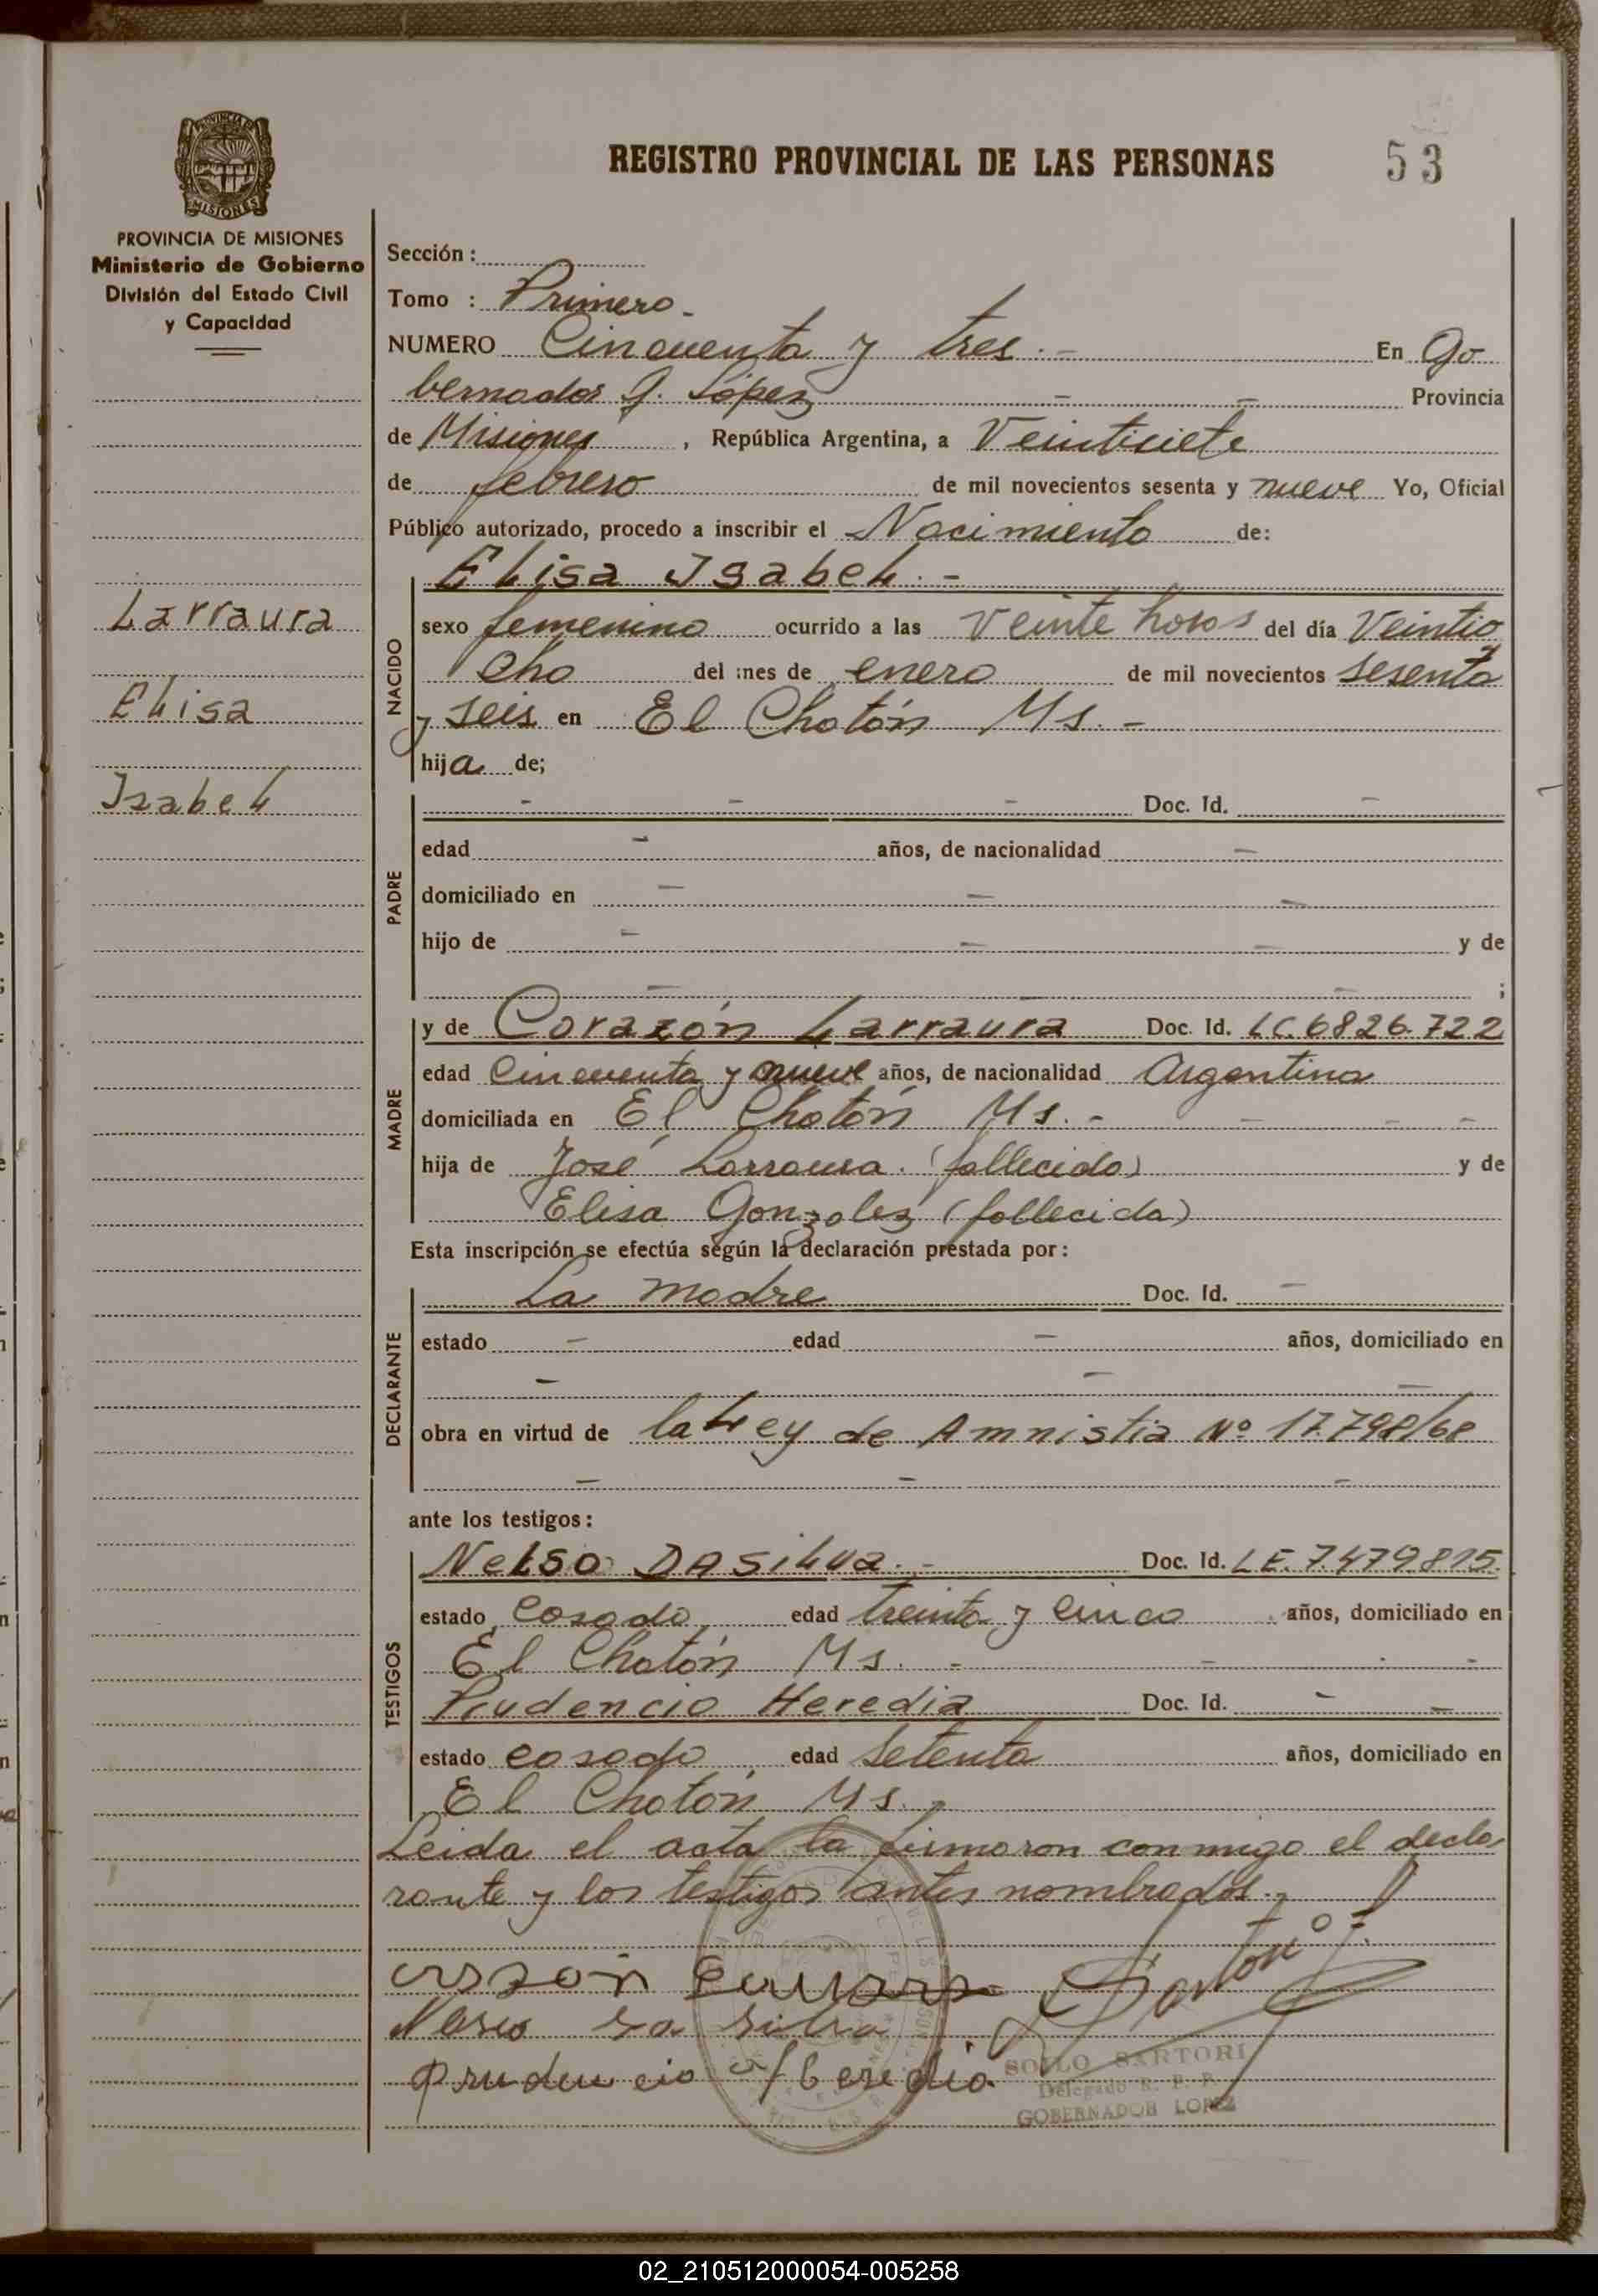 REGISTRO PROVINCIAL DE LAS PERSONAS
53
PROVINCIA DE
MISIONES
PROVINCIA DE MISIONES
Ministerio de Gobierno
División del Estado Civil
y Capacidad
Larraura
Elisa
Isabel
Sección :
Tomo : Primero.-
NUMERO Cincuenta y tres.- En Go
bernador J. López - - Provincia
de Misiones, República Argentina, a Veintisiete
de febrero de mil novecientos sesenta y nueve Yo, Oficial
Público autorizado, procedo a inscribir el Nacimiento de:
Elisa Isabel.-
NACIDO
sexo femenino ocurrido a las veinte horas del día Veintio
cho del mes de enero de mil novecientos sesenta
y seis en El Chatón Ms.-
hija de;
PADRE
- - - Doc. Id. -
edad - años, de nacionalidad -
domiciliado en - - -
hijo de - - - y de
- - ;
MADRE
y de Corazón Larraura Doc. Id. LC.6826.722
edad Cincuenta y nueve años, de nacionalidad Argentina
domiciliada en El Chatón Ms.- - - -
hija de José Larraura. (fallecido) y de
Elisa Gonzalez (fallecida)
Esta inscripción se efectúa según la declaración prestada por:
DECLARANTE
La Madre Doc. Id. -
estado - edad - años, domiciliado en
- - -
obra en virtud de la Ley de Amnistia Nº 17.798/68
- - -
ante los testigos:
TESTIGOS
Nelso DASilva.- Doc. Id. LE.7.479.815.
estado Casado edad treinta y cinco años, domiciliado en
El Chatón Ms. - - -
Prudencio Heredia Doc. Id. - -
estado casado edad Setenta años, domiciliado en
El Chatón Ms.-
Leida el acta la firmaron conmigo el decla
rante y los testigos antes nombrados.-
prudencio Heredia
SOILO SARTORI
Delegado R. P. P.
GOBERNADOR LOPEZ
02_210512000054-005258